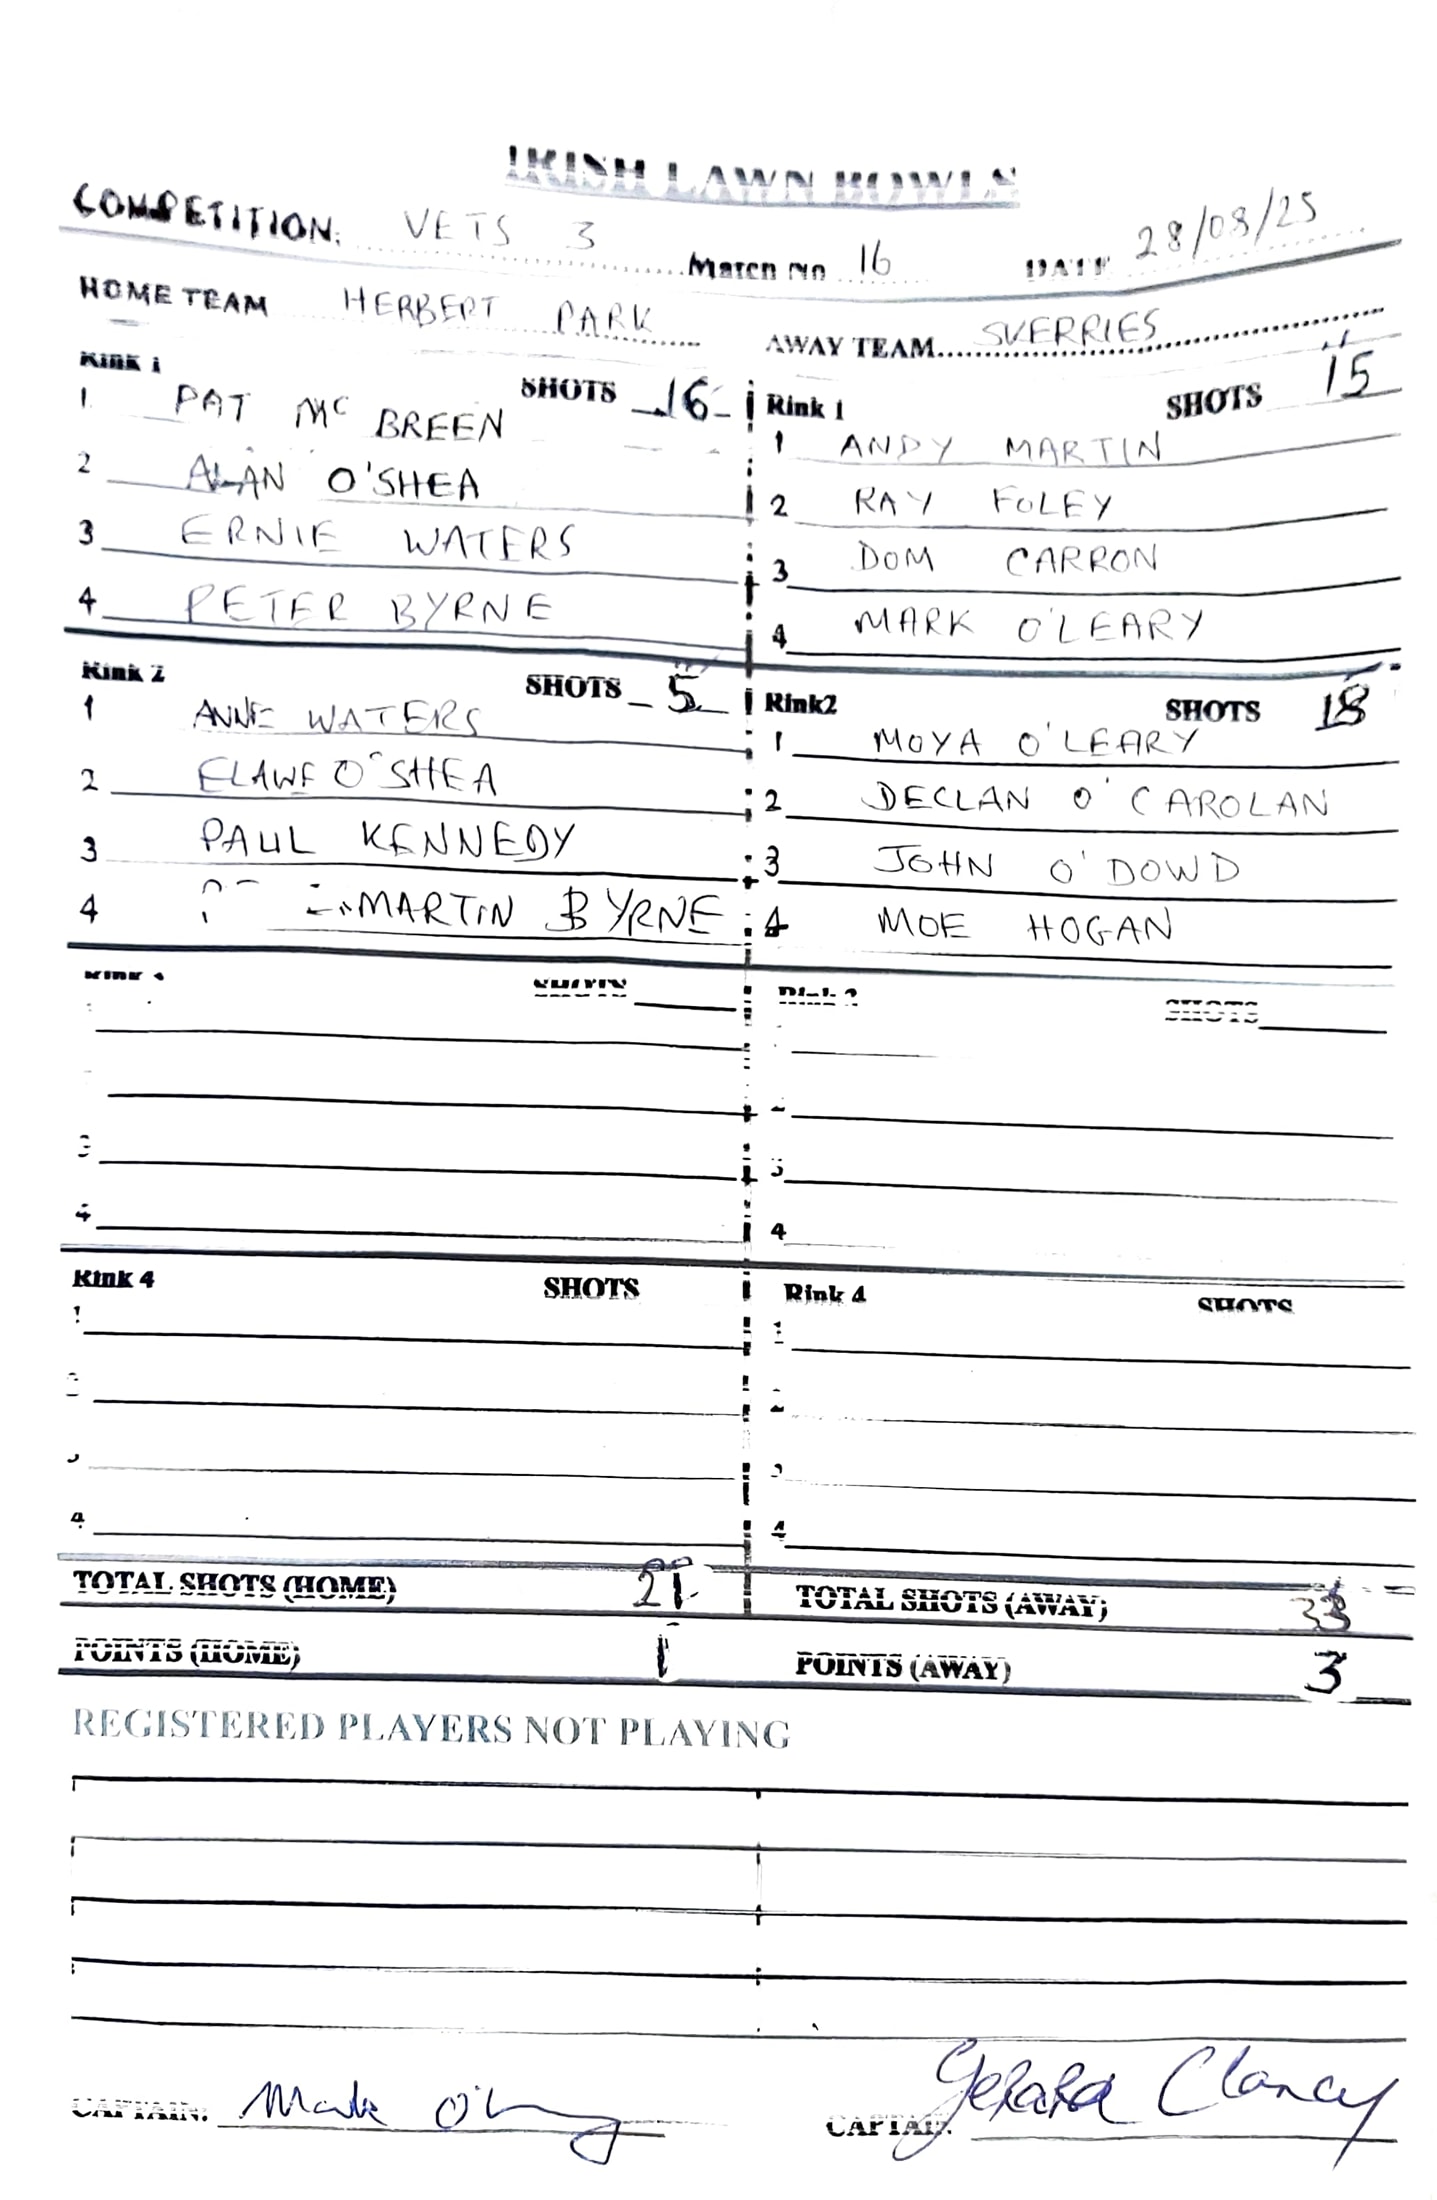 IRISH LAWN BOWLS
COMPETITION: VETS 3 Match No 16 DATE 28/08/25
HOME TEAM HERBERT PARK AWAY TEAM SVERRIES
Rink 1 SHOTS 16 Rink 1 SHOTS 15
1 PAT Mc BREEN 1 ANDY MARTIN
2 ALAN O'SHEA 2 RAY FOLEY
3 ERNIE WATERS 3 DOM CARRON
4 PETER BYRNE 4 MARK O'LEARY
Rink 2 SHOTS 5 Rink2 SHOTS 18
1 ANNE WATERS 1 MOYA O'LEARY
2 O'SHEA 2 DECLAN O'CAROLAN
3 PAUL KENNEDY 3 JOHN O'DOWD
4 MARTIN BYRNE 4 MOE HOGAN
Rink SHOTS Rink 3 SHOTS
3 3
4 4
Rink 4 SHOTS Rink 4 SHOTS
1 1
2 2
3 3
4 4
TOTAL SHOTS (HOME) 21 TOTAL SHOTS (AWAY) 33
POINTS (HOME) 1 POINTS (AWAY) 3
REGISTERED PLAYERS NOT PLAYING
CAPTAIN: Mark O'Leary CAPTAIN: Gerard Clancy